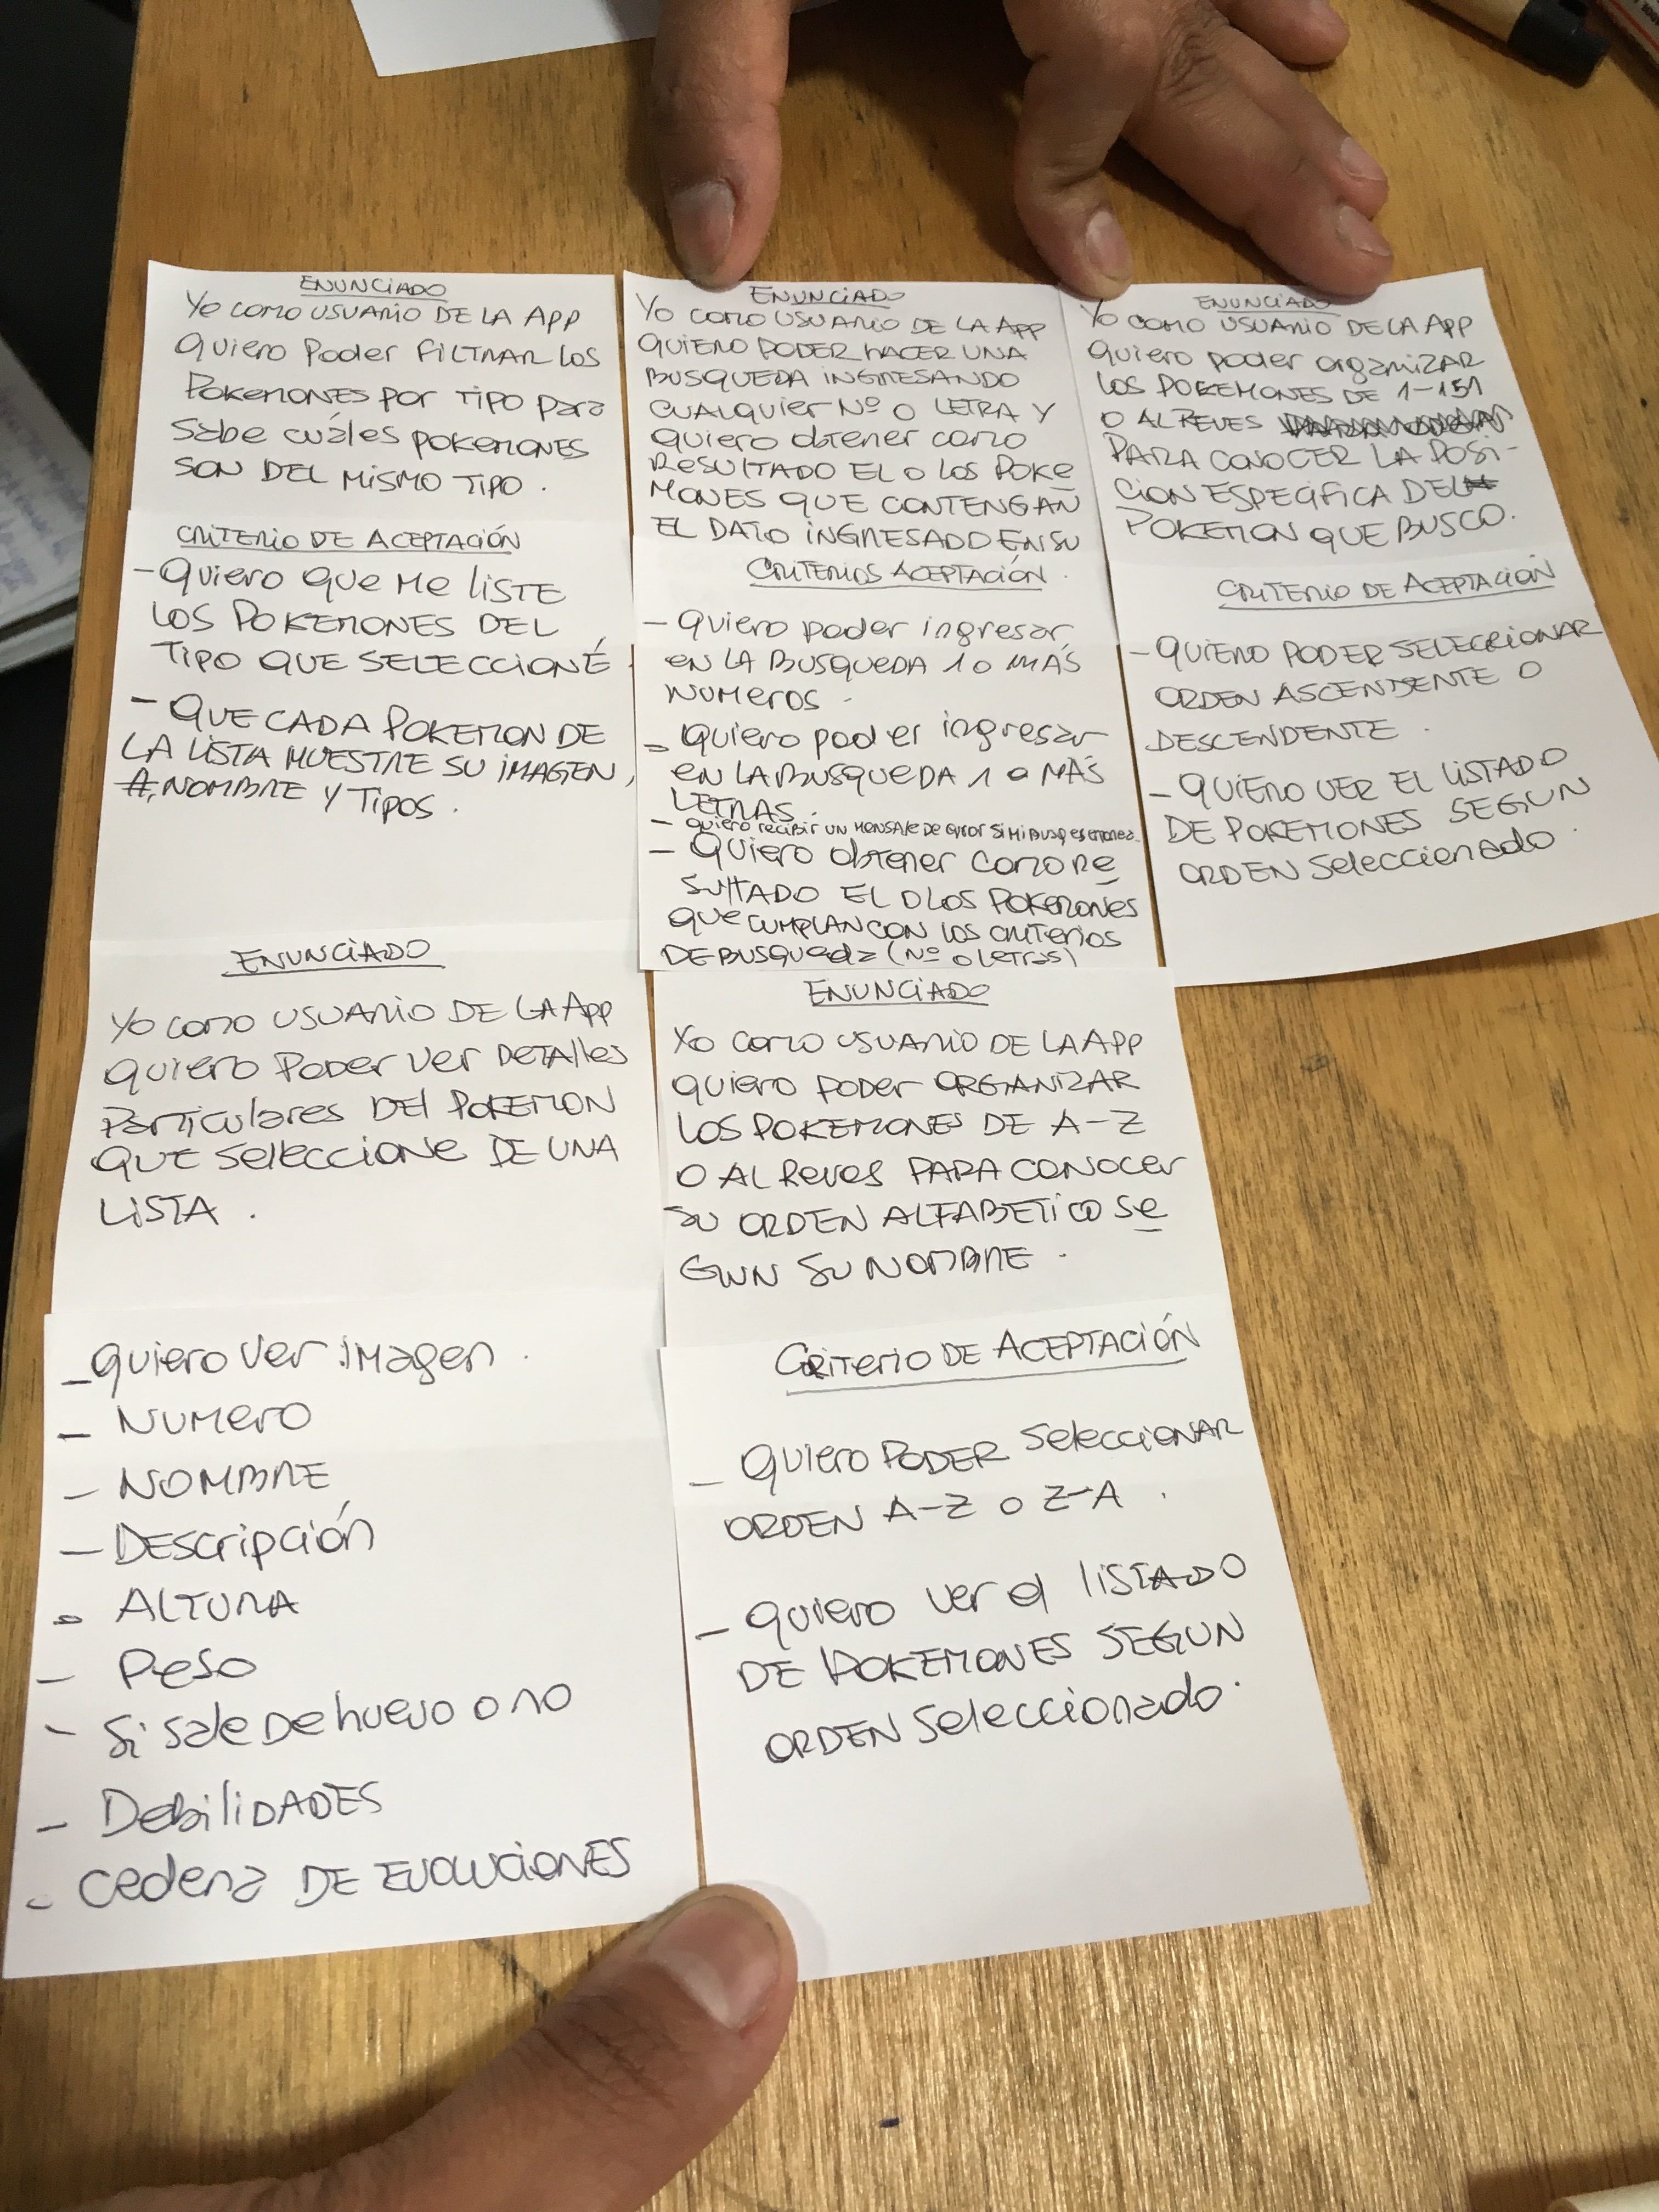 ENUNCIADO
Yo como USUARIO DE LA APP
quiero Poder FILTRAR LOS
POKEMONES por TIPO para
sabe cuáles POKEMONES
SON DEL MISMO TIPO.
CRITERIO DE ACEPTACIÓN
- Quiero que me LISTE
LOS POKEMONES DEL
TIPO QUE SELECCIONÉ
- QUE CADA POKEMON DE
LA LISTA MUESTRE SU IMAGEN,
#, NOMBRE Y TIPOS.
ENUNCIADO
Yo como USUARIO DE LA APP
QUIERO PODER HACER UNA
BUSQUEDA INGRESANDO
CUALQUIER Nº O LETRA Y
quiero obtener como
RESULTADO EL O LOS POKE
MONES QUE CONTENGAN
EL DATO INGRESADO EN SU
CRITERIOS ACEPTACIÓN.
- Quiero poder ingresar
EN LA BUSQUEDA 1 O MÁS
NUMEROS.
- Quiero poder ingresar
EN LA BUSQUEDA 1 O MÁS
LETRAS.
- quiero recibir UN MENSAJE DE error SI MI BUSQ es
- Quiero obtener COMO RE
SULTADO EL O LOS POKEMONES
QUE CUMPLAN CON LOS CRITERIOS
DE BUSQUEDA (Nº O LETRAS)
ENUNCIADO
Yo como USUARIO DE LA APP
quiero poder organizAR
LOS POKEMONES DE 1-151
O AL REVES
PARA CONOCER LA POSI-
CION ESPECIFICA DEL
POKEMON QUE BUSCO.
CRITERIO DE ACEPTACION
- QUIERO PODER SELECCIONAR
ORDEN ASCENDENTE O
DESCENDENTE.
- QUIERO VER EL LISTADO
DE POKEMONES SEGUN
ORDEN seleccionado.
ENUNCIADO
Yo como USUARIO DE LA APP
quiero PODER ver DETALLES
Particulares DEL POKEMON
QUE seleccione DE UNA
LISTA.
- quiero ver imagen.
- NUMERO
- NOMBRE
- DEScripción
- ALTURA
- Peso
- Si sale De huevo o no
- DebiliDADES
- cedena DE EVOLUCIONES
ENUNCIADO
Yo como USUARIO DE LA APP
quiero PODER ORGANIZAR
LOS POKEMONES DE A-Z
O AL Reves PARA CONOCER
SU ORDEN ALFABETICO SE
GUN SU NOMBRE.
CRITERIO DE ACEPTACIÓN
- QUIERO PODER seleccioNAR
ORDEN A-Z O Z-A.
- quiero ver el LISTADO
DE POKEMONES SEGUN
ORDEN seleccionado.